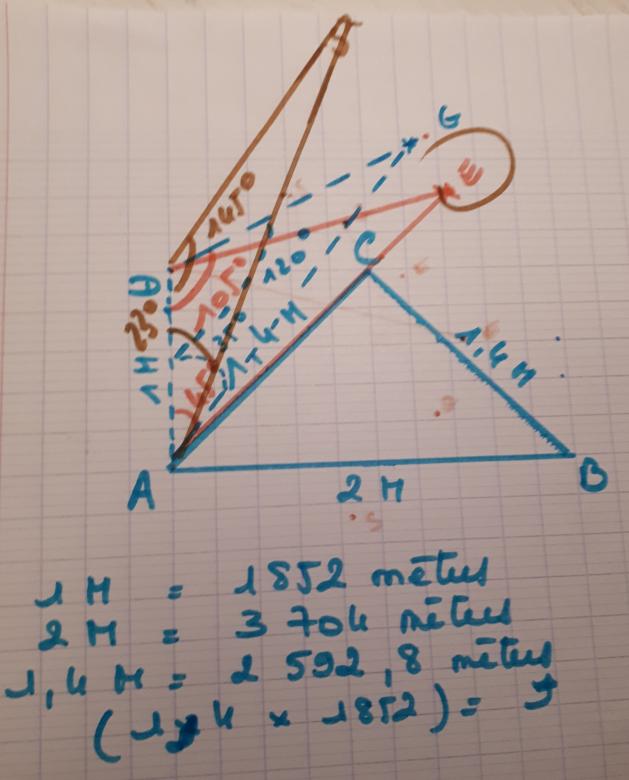 G
E
145°
C
120°
D
105°
23°
1,4 M
1 M
45°
1,4 M
A
2 M
B
1 M = 1852 mètres
2 M = 3 704 mètres
1,4 M = 2 592,8 mètres
(1,4 x 1852) =